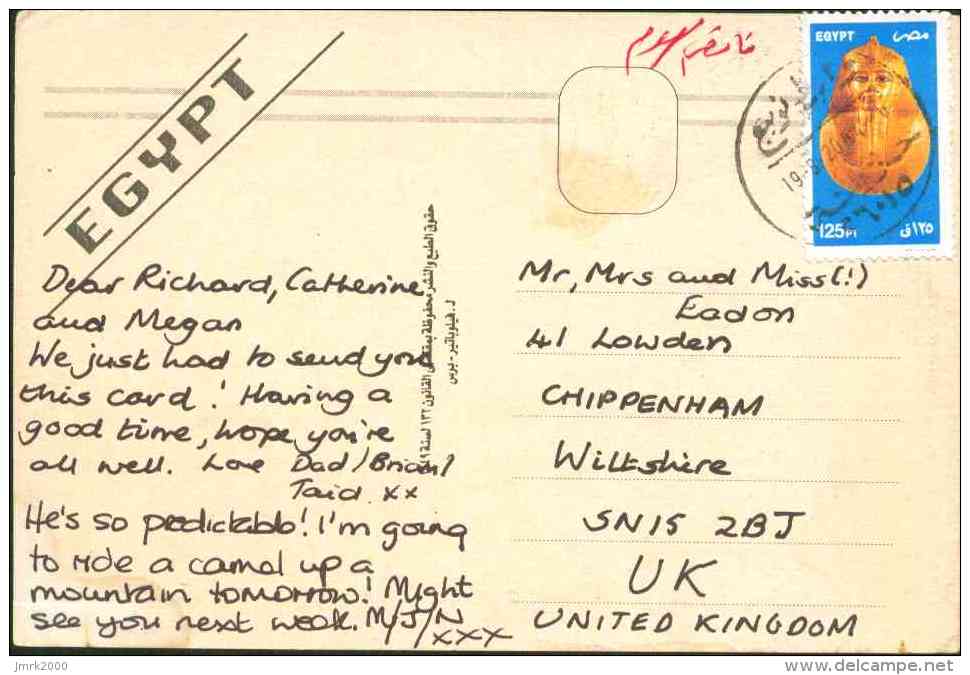 EGYPT
Dear Richard, Catherine
and Megan
We just had to send you
this card! Having a
good time, hope you're
all well. Love Dad/Brian/
Taid xx
He's so predictable! I'm going
to ride a camel up a
mountain tomorrow! Might
see you next week. M/J/N
xxx
حقوق الطبع والنشر محفوظة
القانون ١٣٢ لسنة
EGYPT مصر
125PT ١٢٥ق
Mr, Mrs and Miss(!)
Eadon
41 Lowden
CHIPPENHAM
Wiltshire
SN15 2BJ
UK
UNITED KINGDOM
jmrk2000
www.delcampe.net